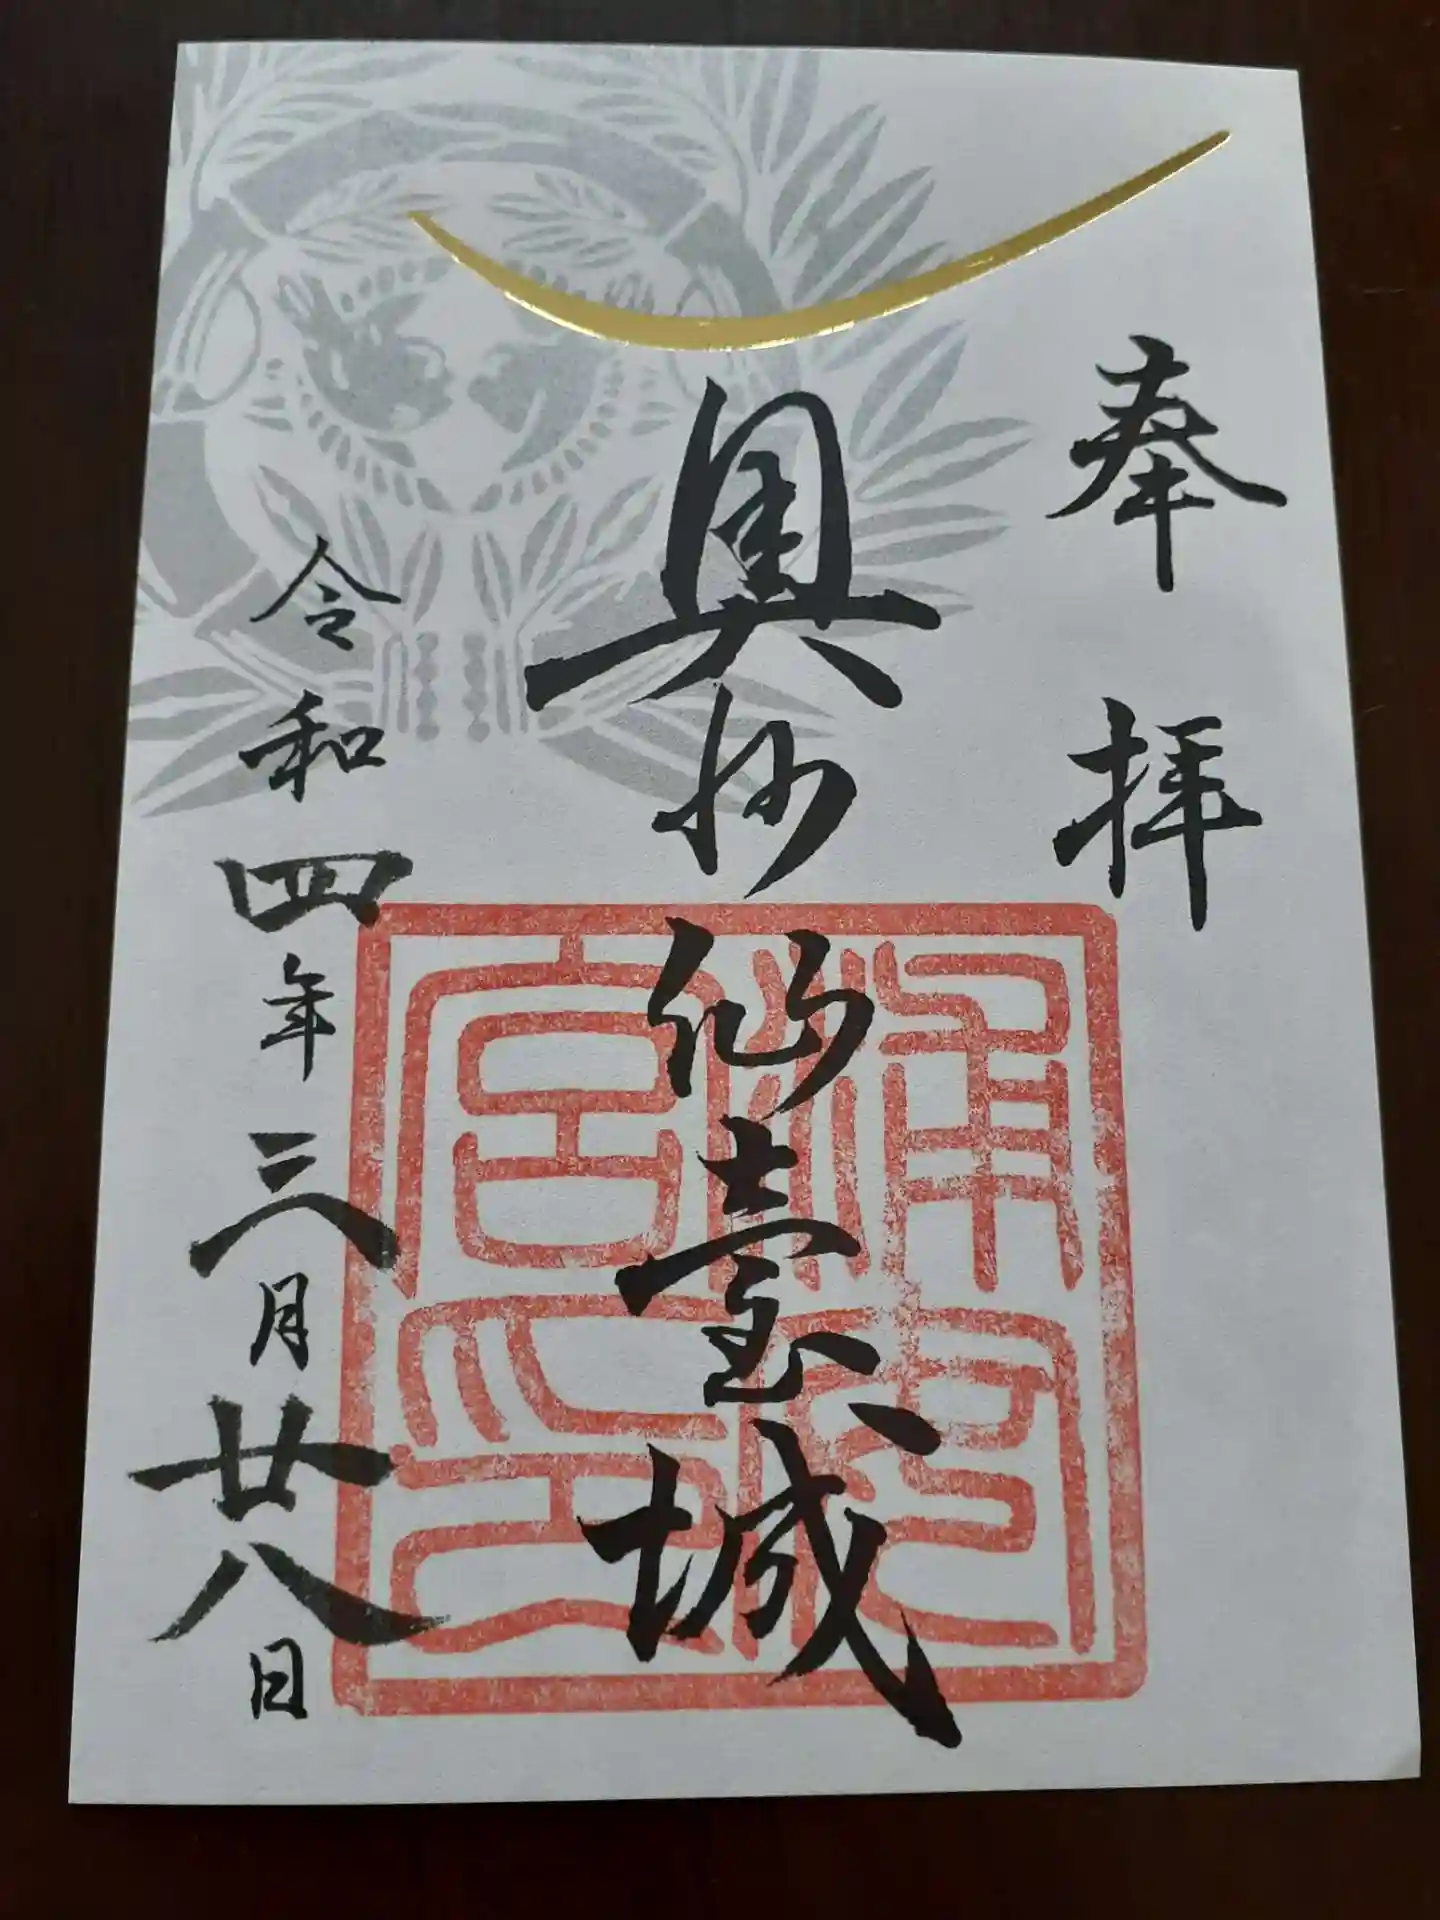 奉拝
奥州仙臺城
令和四年三月廿八日